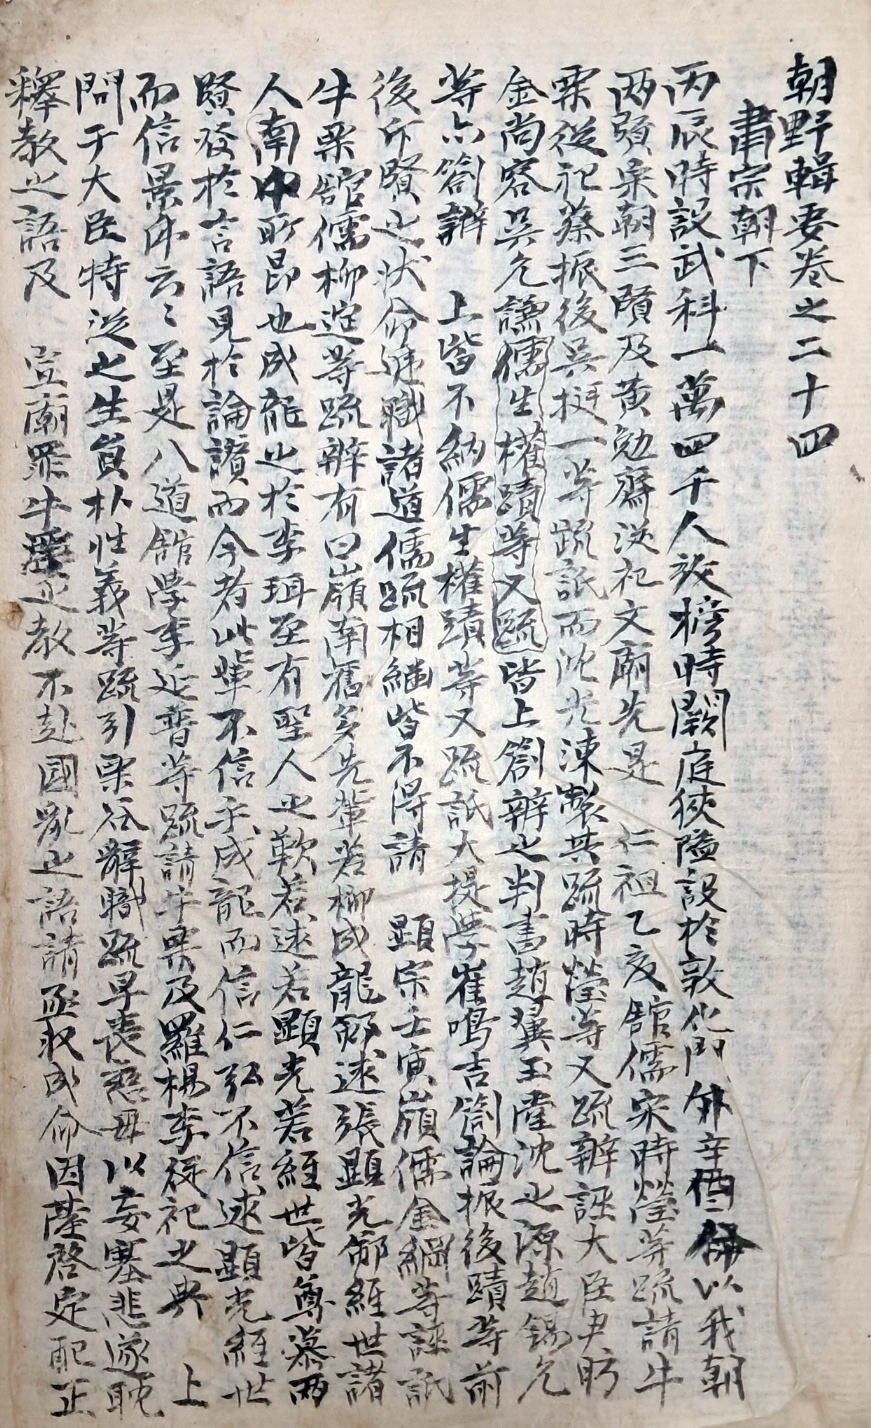 朝野輯要卷之二十四
肅宗朝下
丙辰時設武科一萬四千人放榜時闕庭狹隘設於敦化門外辛酉命以我朝
兩賢宋朝三賢及黃勉齋從祀文廟先是 仁祖乙亥舘儒宋時瑩等疏請牛
栗從祀蔡振後吳挺一等疏詆而沈光洙製其疏時瑩等又疏辨誣大臣尹昉
金尙容吳允謙儒生權蹟等又疏皆上箚辨之判書趙翼玉堂沈之源趙錫允
等亦箚辨 上皆不納儒生權蹟等又疏詆大提學崔鳴吉箚論振後蹟等前
後斥賢之狀命遞職諸道儒疏相繼皆不得請 顯宗壬寅嶺儒金綱等誣詆
牛栗舘儒柳淀等疏辨有曰嶺南舊多先輩若柳成龍鄭逑張顯光鄭經世諸
人南中所昂也成龍之於李珥至有聖人之歎若逑若顯光若經世皆尊慕兩
賢發於言語見於論讚而今者此輩不信于成龍而信仁弘不信逑顯光經世
而信景虎云〻至是八道舘學李延普等疏請牛栗及羅楊李從祀之典 上
問于大臣特從之生員朴性義等疏引栗谷辭職疏早喪慈母以妄塞悲遂耽
釋敎之語及 宣廟罪牛溪之敎不赴國亂之語請亟收成命因薩啓定配正